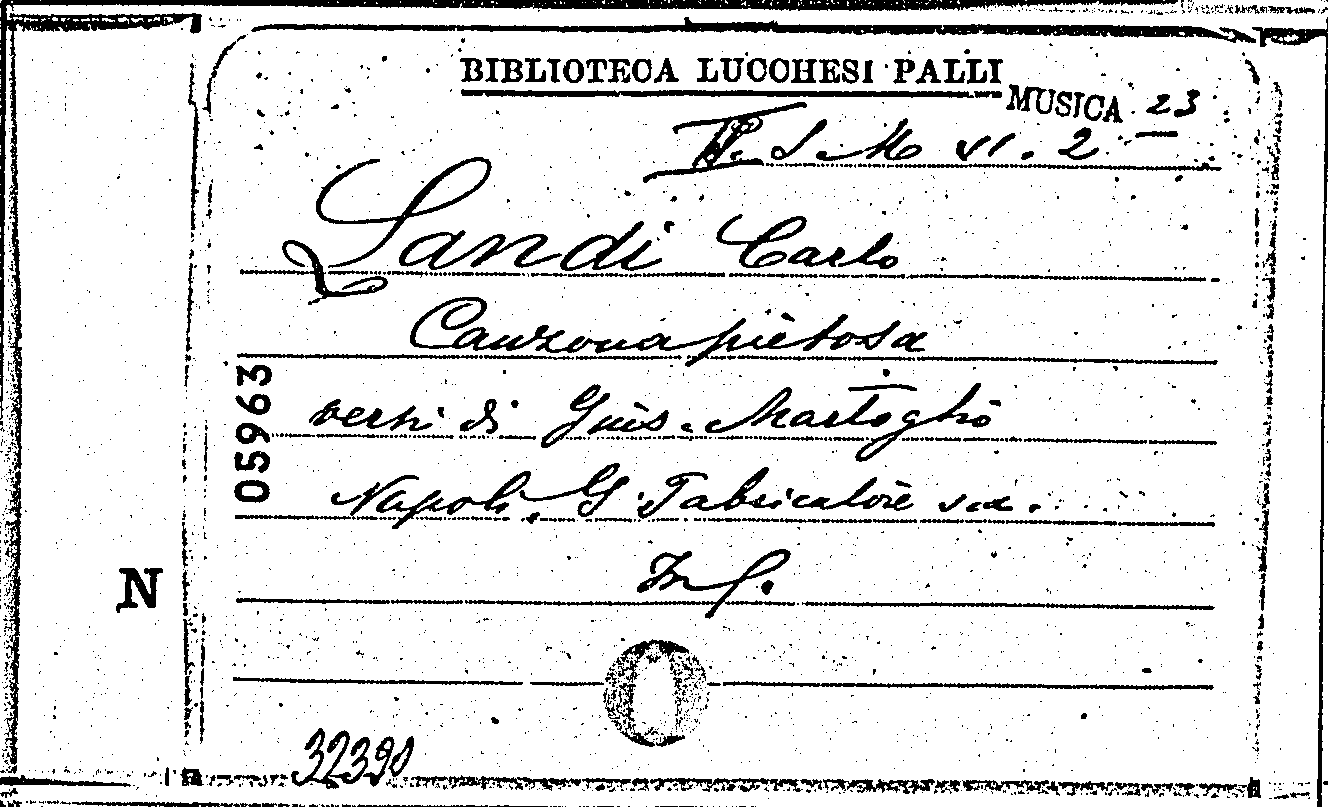 BIBLIOTECA LUCCHESI PALLI
MUSICA 23
S. M. VI. 2
Landi Carlo
Canzona pietosa
versi di Gius. Martoglio
Napoli. G. Fabricatore s.a.
In f.
05963
N
32390